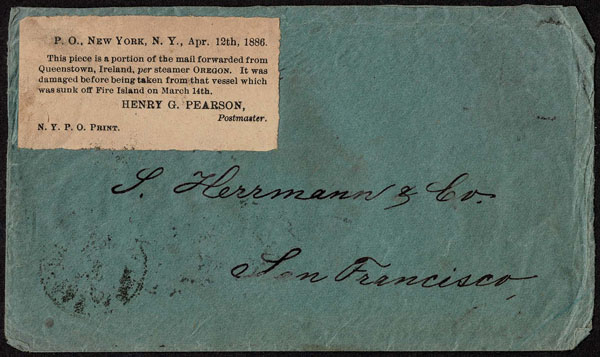 P. O., NEW YORK, N. Y., Apr. 12th, 1886.
This piece is a portion of the mail forwarded from
Queenstown, Ireland, per steamer OREGON. It was
damaged before being taken from that vessel which
was sunk off Fire Island on March 14th.
HENRY G. PEARSON,
Postmaster.
N. Y. P. O. PRINT.
S. Herrmann & Co.
San Francisco,